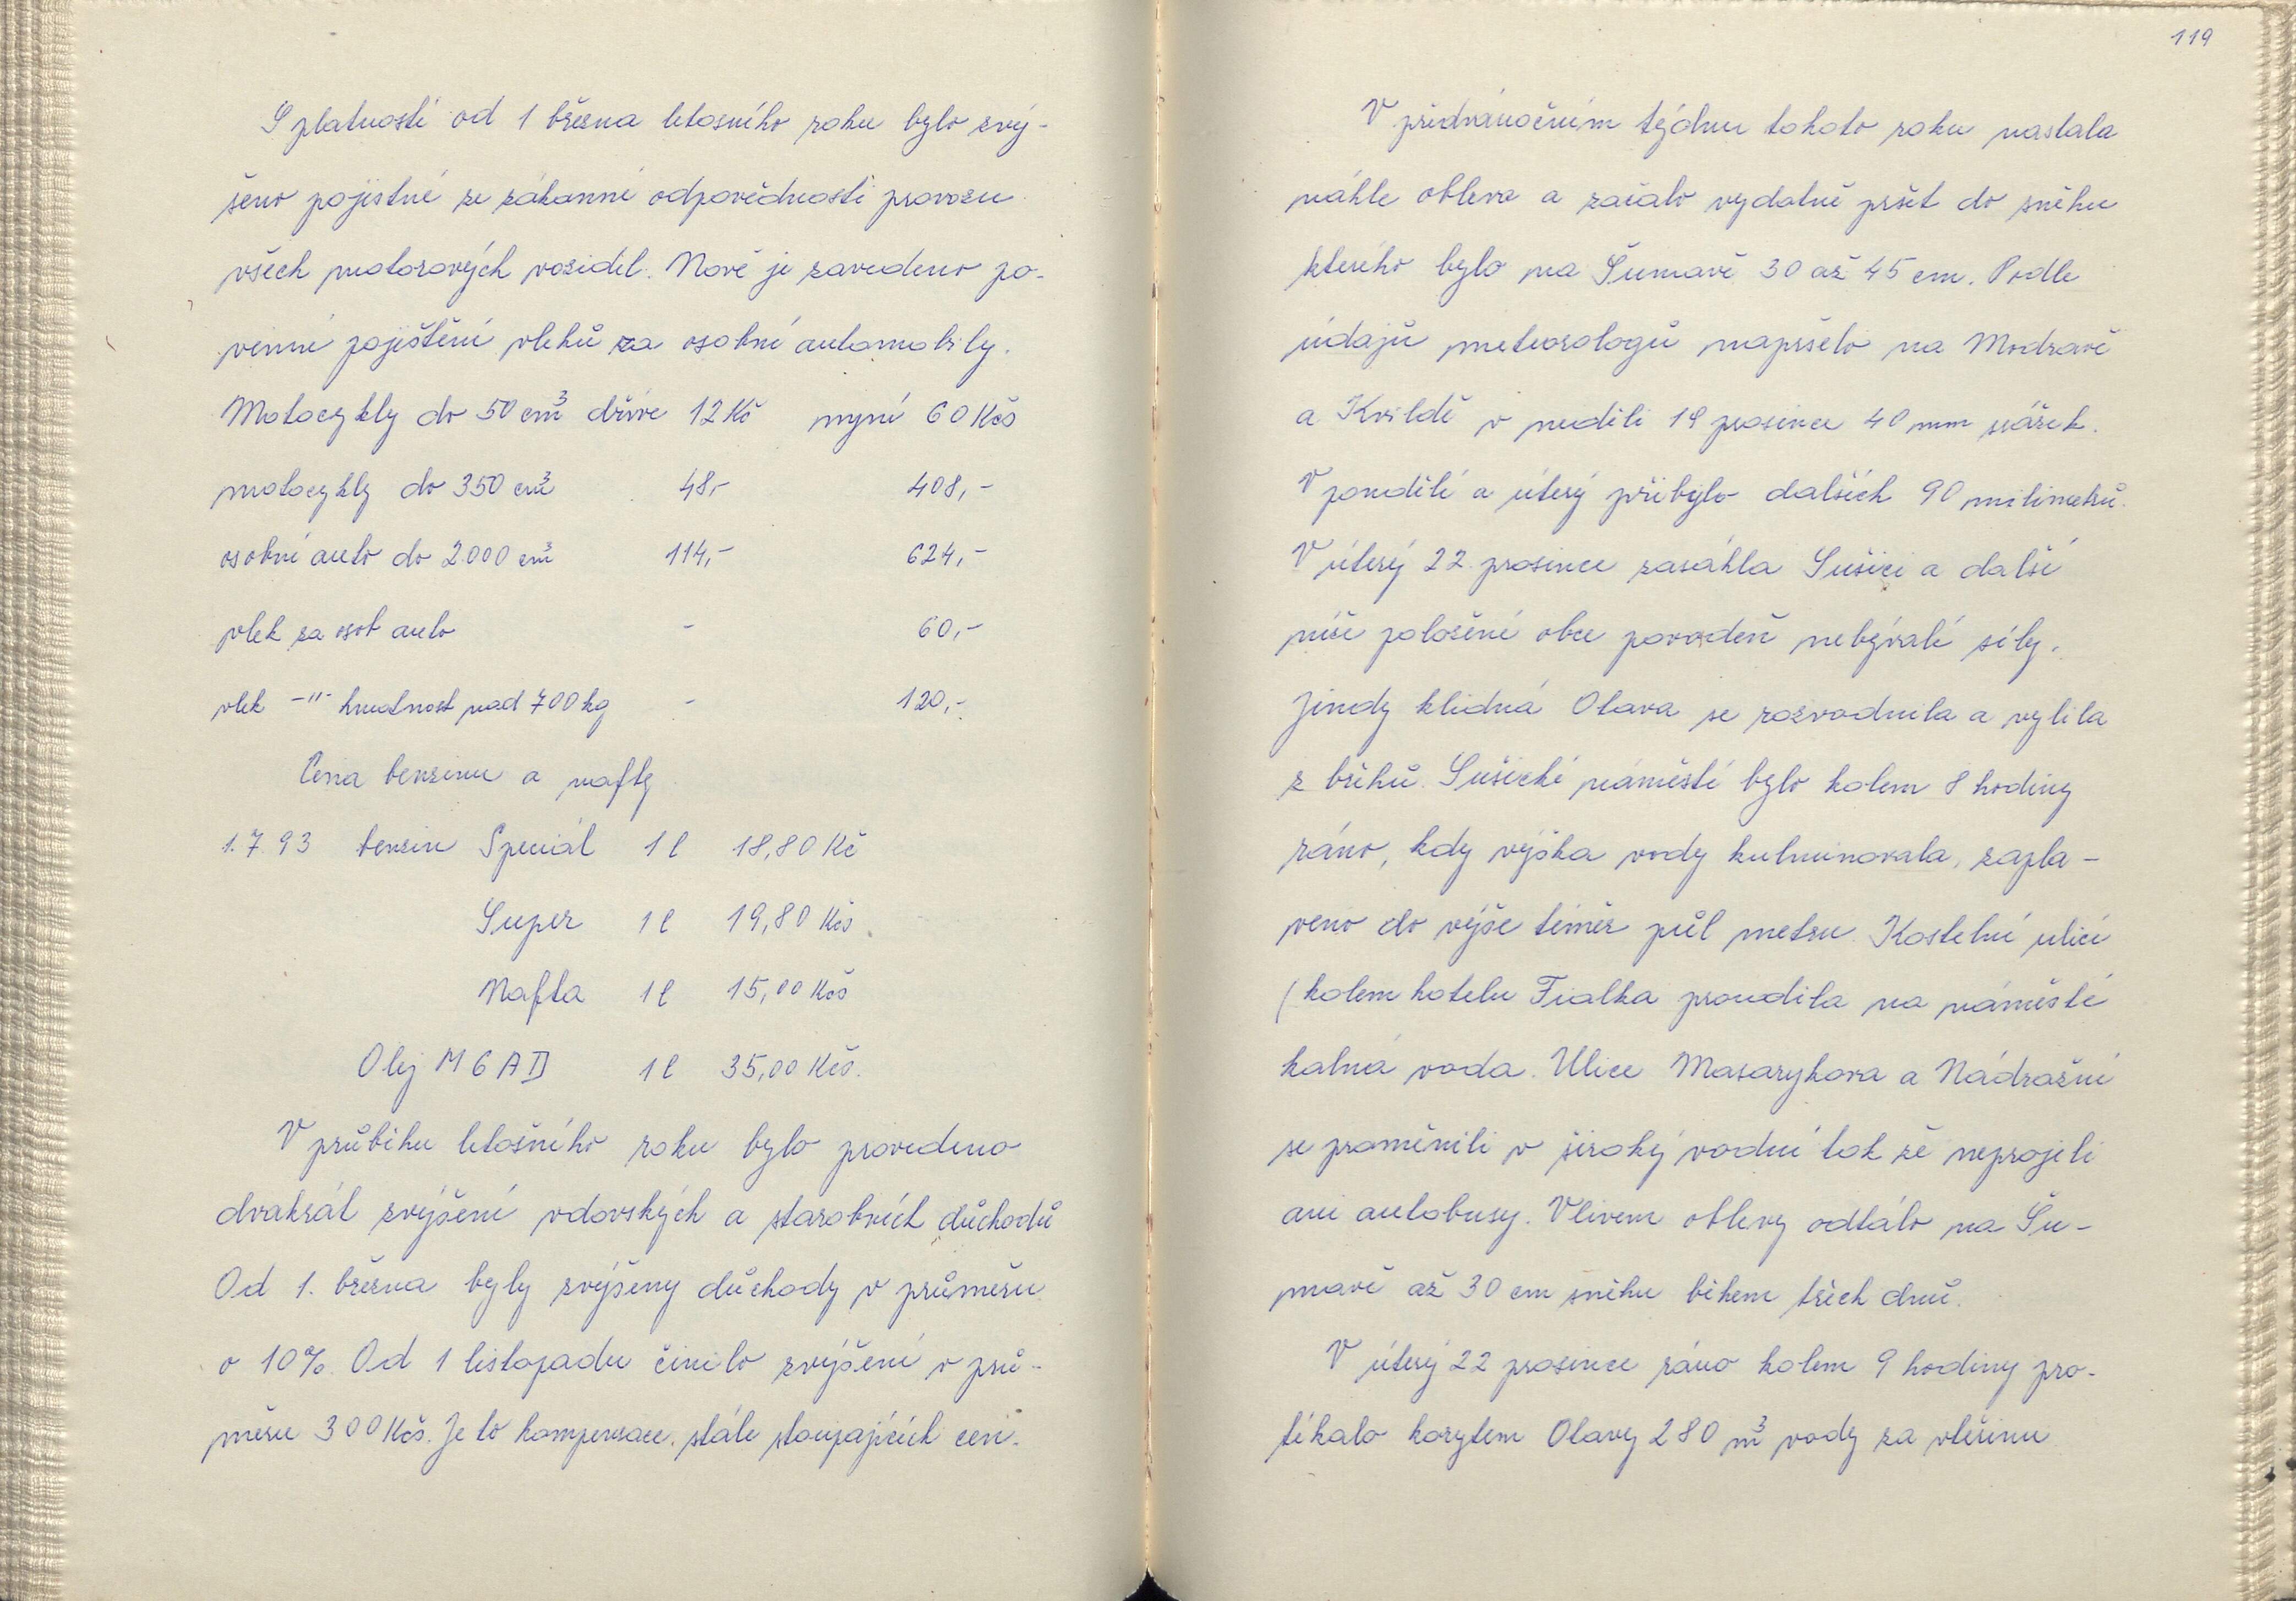 S platností od 1 března letosního roku bylo zvý-
šeno pojistné ze zákonné odpovědnosti provozu
všech motorových vozidel. Nově je zavedeno po-
vinné pojištění vleků za osobní automobily.
Motocykly do 50 cm³ dříve 12 Kč nyní 60 Kčs
motocykly do 350 cm³ 48,- 408,-
osobní auto do 2000 cm³ 114,- 624,-
vlek za osob auto - 60,-
vlek -"- hmotnost nad 700 kg - 120,-
Cena benzinu a nafty
1.7.93 benzin Speciál 1 l 18,80 Kč
Super 1 l 19,80 Kčs
Nafta 1 l 15,00 Kčs
Olej M6AD 1 l 35,00 Kčs.
V průběhu letošního roku bylo provedeno
dvakrát zvýšení vdovských a starobních důchodů
Od 1. března byly zvýšeny důchody v průměru
o 10%. Od 1 listopadu činilo zvýšení v prů-
měru 300 Kčs. Je to kompenzace stále stoupajících cen.
119
V předvánočním týdnu tohoto roku nastala
náhle obleva a začalo vydatně pršet do sněhu
kterého bylo na Šumavě 30 až 45 cm. Podle
údajů meteorologů napršelo na Modravě
a Kvildě v neděli 19 prosince 40 mm srážek.
V pondělí a úterý přibylo dalších 90 milimetrů.
V úterý 22. prosince zasáhla Sušici a další
níže položené obce povodeň nebývalé síly.
Jindy klidná Otava se rozvodnila a vylila
z břehů. Sušické náměstí bylo kolem 8 hodiny
ráno, kdy výška vody kulminovala, zapla-
veno do výše téměř půl metru. Kostelní ulicí
(kolem hotelu Fialka proudila na náměstí
kalná voda. Ulice Masarykova a Nádražní
se proměnili v široký vodní tok že neprojeli
ani autobusy. Vlivem oblevy odtálo na Šu-
mavě až 30 cm sněhu během třech dnů.
V úterý 22 prosince ráno kolem 9 hodiny pro-
tékalo korytem Otavy 280 m³ vody za vteřinu